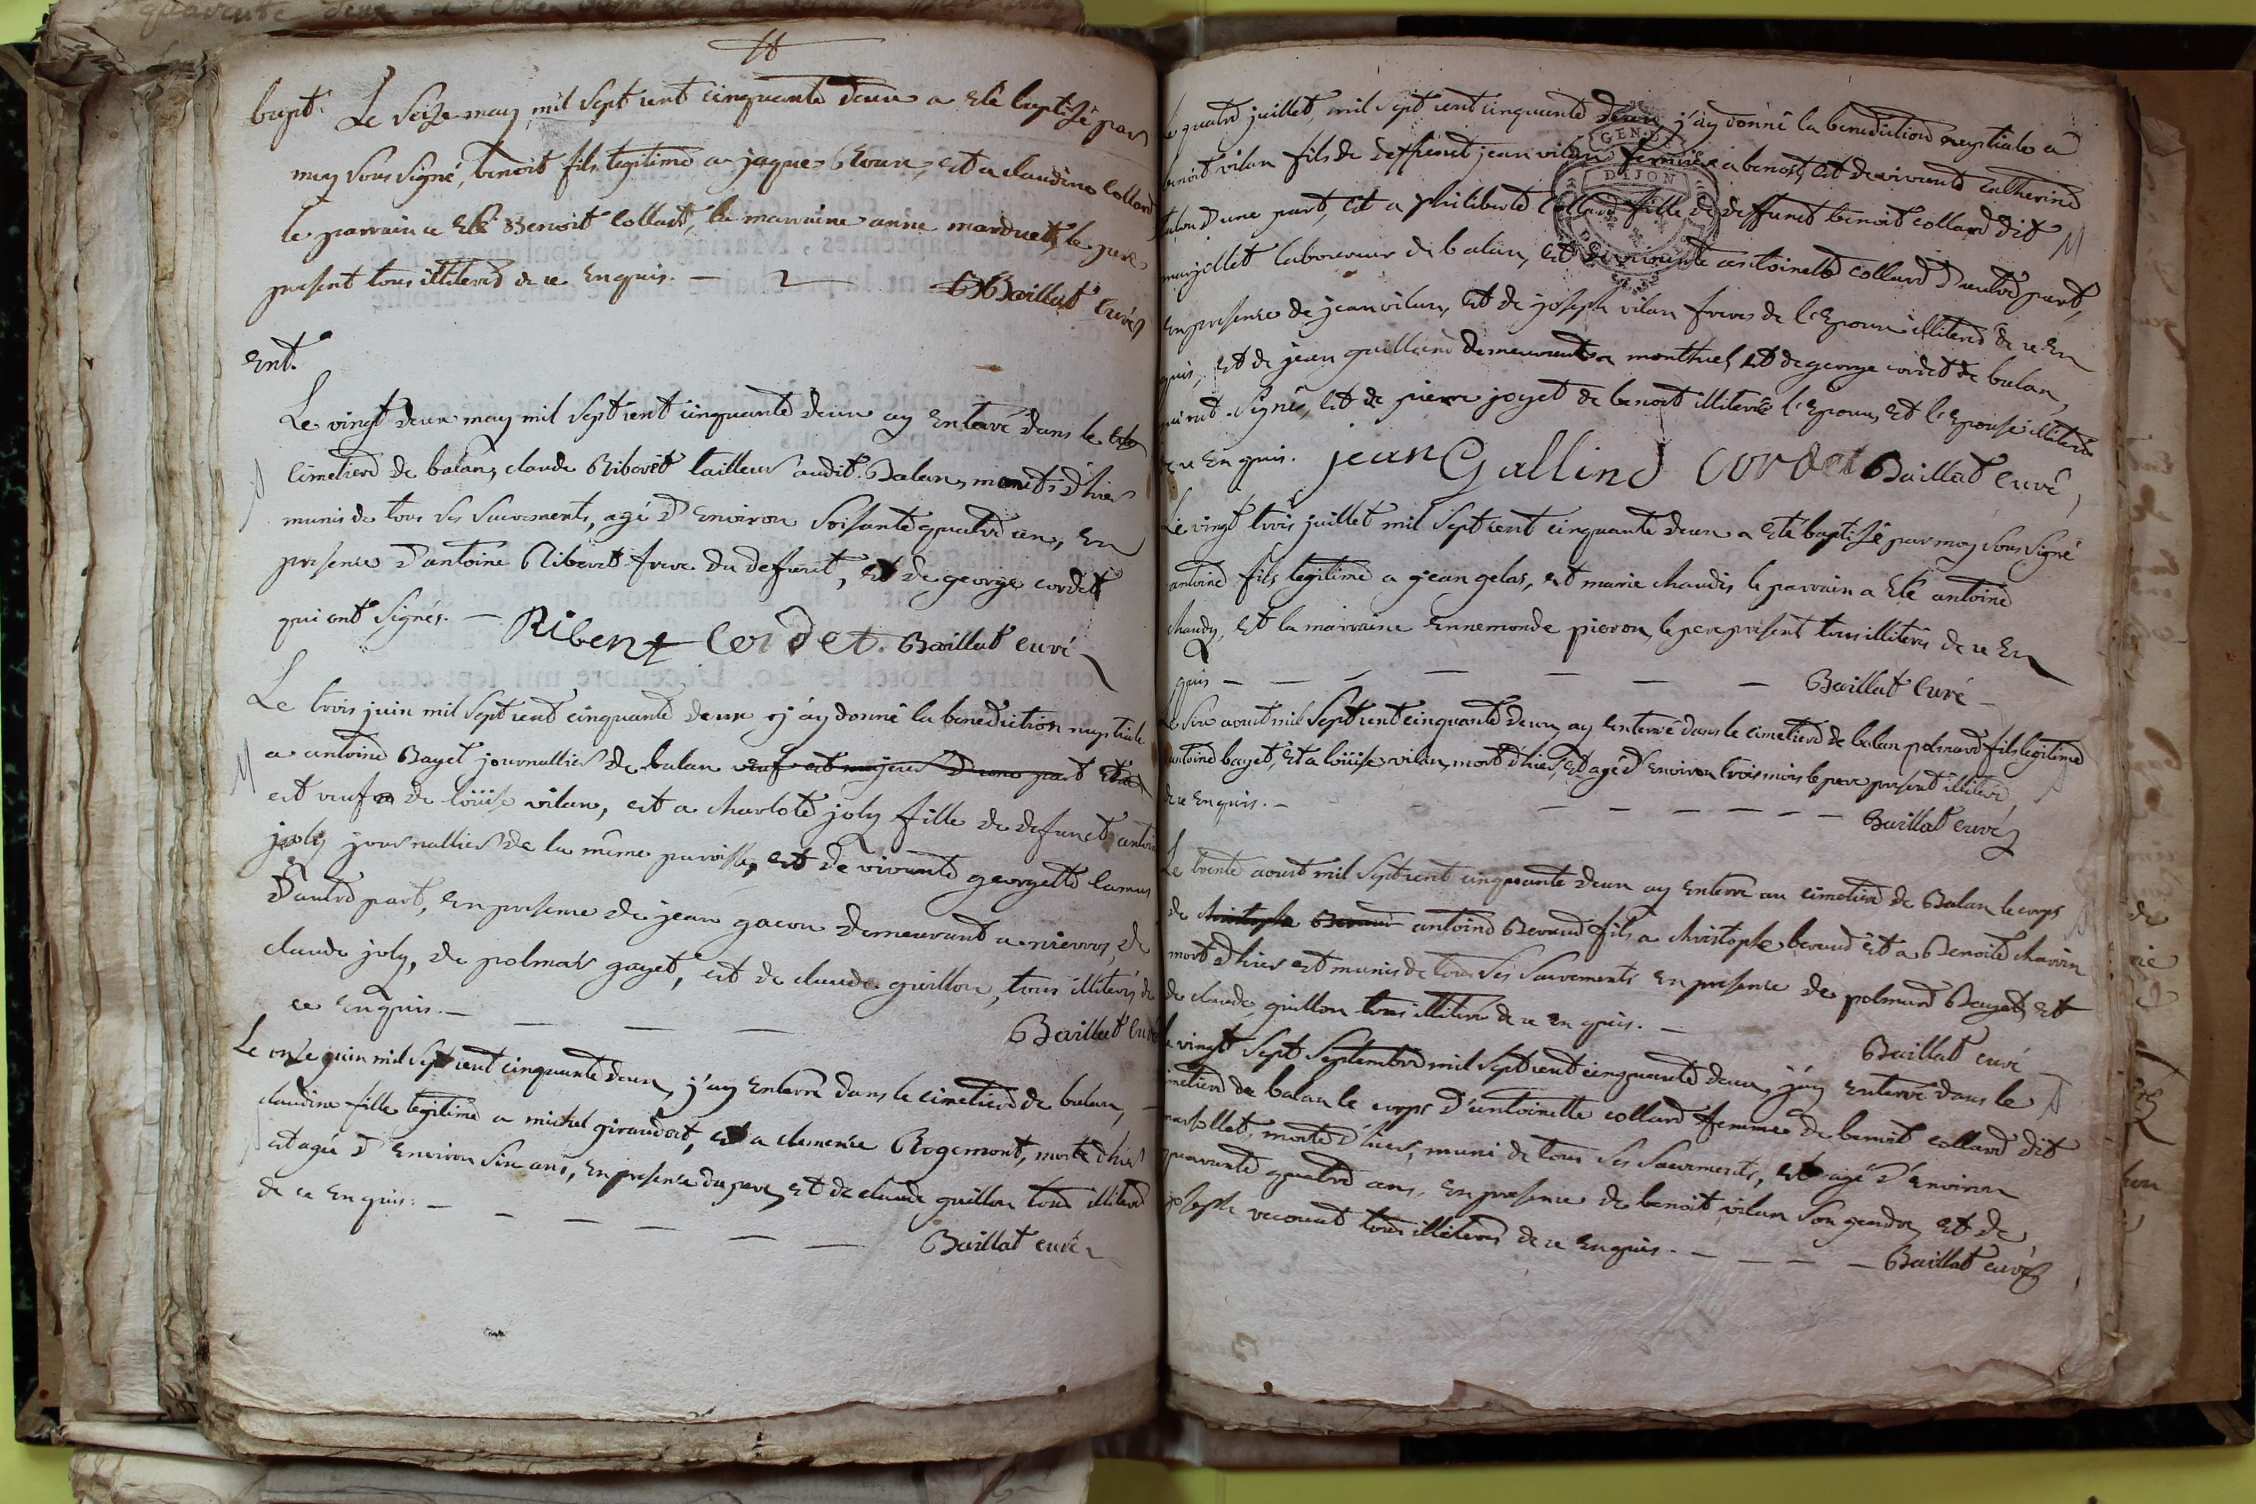 bapt.
Le seize may mil sept cent cinquante deux a eté baptisé par
moy sous signé, benoit fils legitime a jaque et a claudine collard
le parrain a eté Benoit collard, la marraine anne le pere
present tous illiterés de ce enquis. —
Baillat curé
Ent.
Le vingt deux may mil sept cent cinquante deux ay enterré dans le
cimetiere de balan, claude Ribout tailleur audit Balan, mort d'hier
munis de tous ses sacrements, agé d'environ soisante quatre ans, en
presence d'antoine frere du defunt, et de george cordet
qui ont signés. — Cordet. Baillat curé
Le trois juin mil sept cent cinquante deux j'ay donné la benediction nuptiale
a antoine Bayet journallier de balan veuf et majeur d'une part et a
et veuf de loüise vilan, et a charlote joly fille de defunct antoine
joly journallier de la même paroisse, et de vivante georgette camus
d'autre part, en presence de jean gacon demeurant a de
claude joly, de polmar gayet, et de claude guillon, tous illiterés de
ce enquis. — — — —
Baillat curé
Le onze juin mil sept cent cinquante deux, j'ay enterré dans le cimetiere de balan,
claudine fille legitime a michel giraudet, et a clemence Rogemont, morte d'hier
et agée d'environ six ans, en presence du pere, et de claude guillon tous illiterés
de ce enquis. — — — — — — —
Baillat curé
Le quatre juillet, mil sept cent cinquante deux j'ay donné la benediction nuptiale a
benoit vilan fils de deffunct jean vilan fermier a benost, et de vivante catherine
d'une part, et a philiberte collard fille de deffunct benoit collard dit
marjollet laboureur de balan, et de vivante antoinette collard d'autre part,
en presence de jean vilan, et de joseph vilan freres de l'epoux illiteré de ce en
quis, et de jean gallind demeurent a montluel, et de george cordet de balan,
qui ont signés, et de pierre joyet de benost illiterés l'epoux, et l'epouse illiterés
de ce enquis. jean Gallind Cordet Baillat curé
Le vingt trois juillet mil sept cent cinquante deux a eté baptisé par moy sous signé
antoine fils legitime a jean gelas, et marie chaudy le parrain a eté antoine
chaudy, et la marraine ennemonde pieron, le pere present tous illiterés de ce en
quis — — — — — — — —
Baillat curé
Le six aoust mil sept cent cinquante deux, ay enterré dans le cimetiere de balan polmard fils legitime
a antoine bayet, et a loüise vilan, mort d'hier, et agé d'environ trois mois le pere present illiteré
de ce enquis. — — — — — — —
Baillat curé
Le trente aoust mil sept cent cinquante deux ay enterré au cimetiere de Balan le corps
de christophe antoine Beraud fils a christophe beraud et a Benoite charvin
mort d'hier et munis de tous ses sacrements en presence de polmard Bayet, et
de claude guillon tous illiterés de ce enquis. —
Baillat curé
Le vingt sept septembre mil sept cent cinquante deux, j'ay enterré dans le
cimetiere de balan le corps d'antoinette collard femme de benoit collard dit
marjollet, morte d'hier, muni de tous ses sacrements, et agé d'environ
quarante quatre ans, en presence de benoit vilan son gendre, et de
joseph tous illiterés de ce enquis. — — — —
Baillat curé
GEN. DE
DIJON